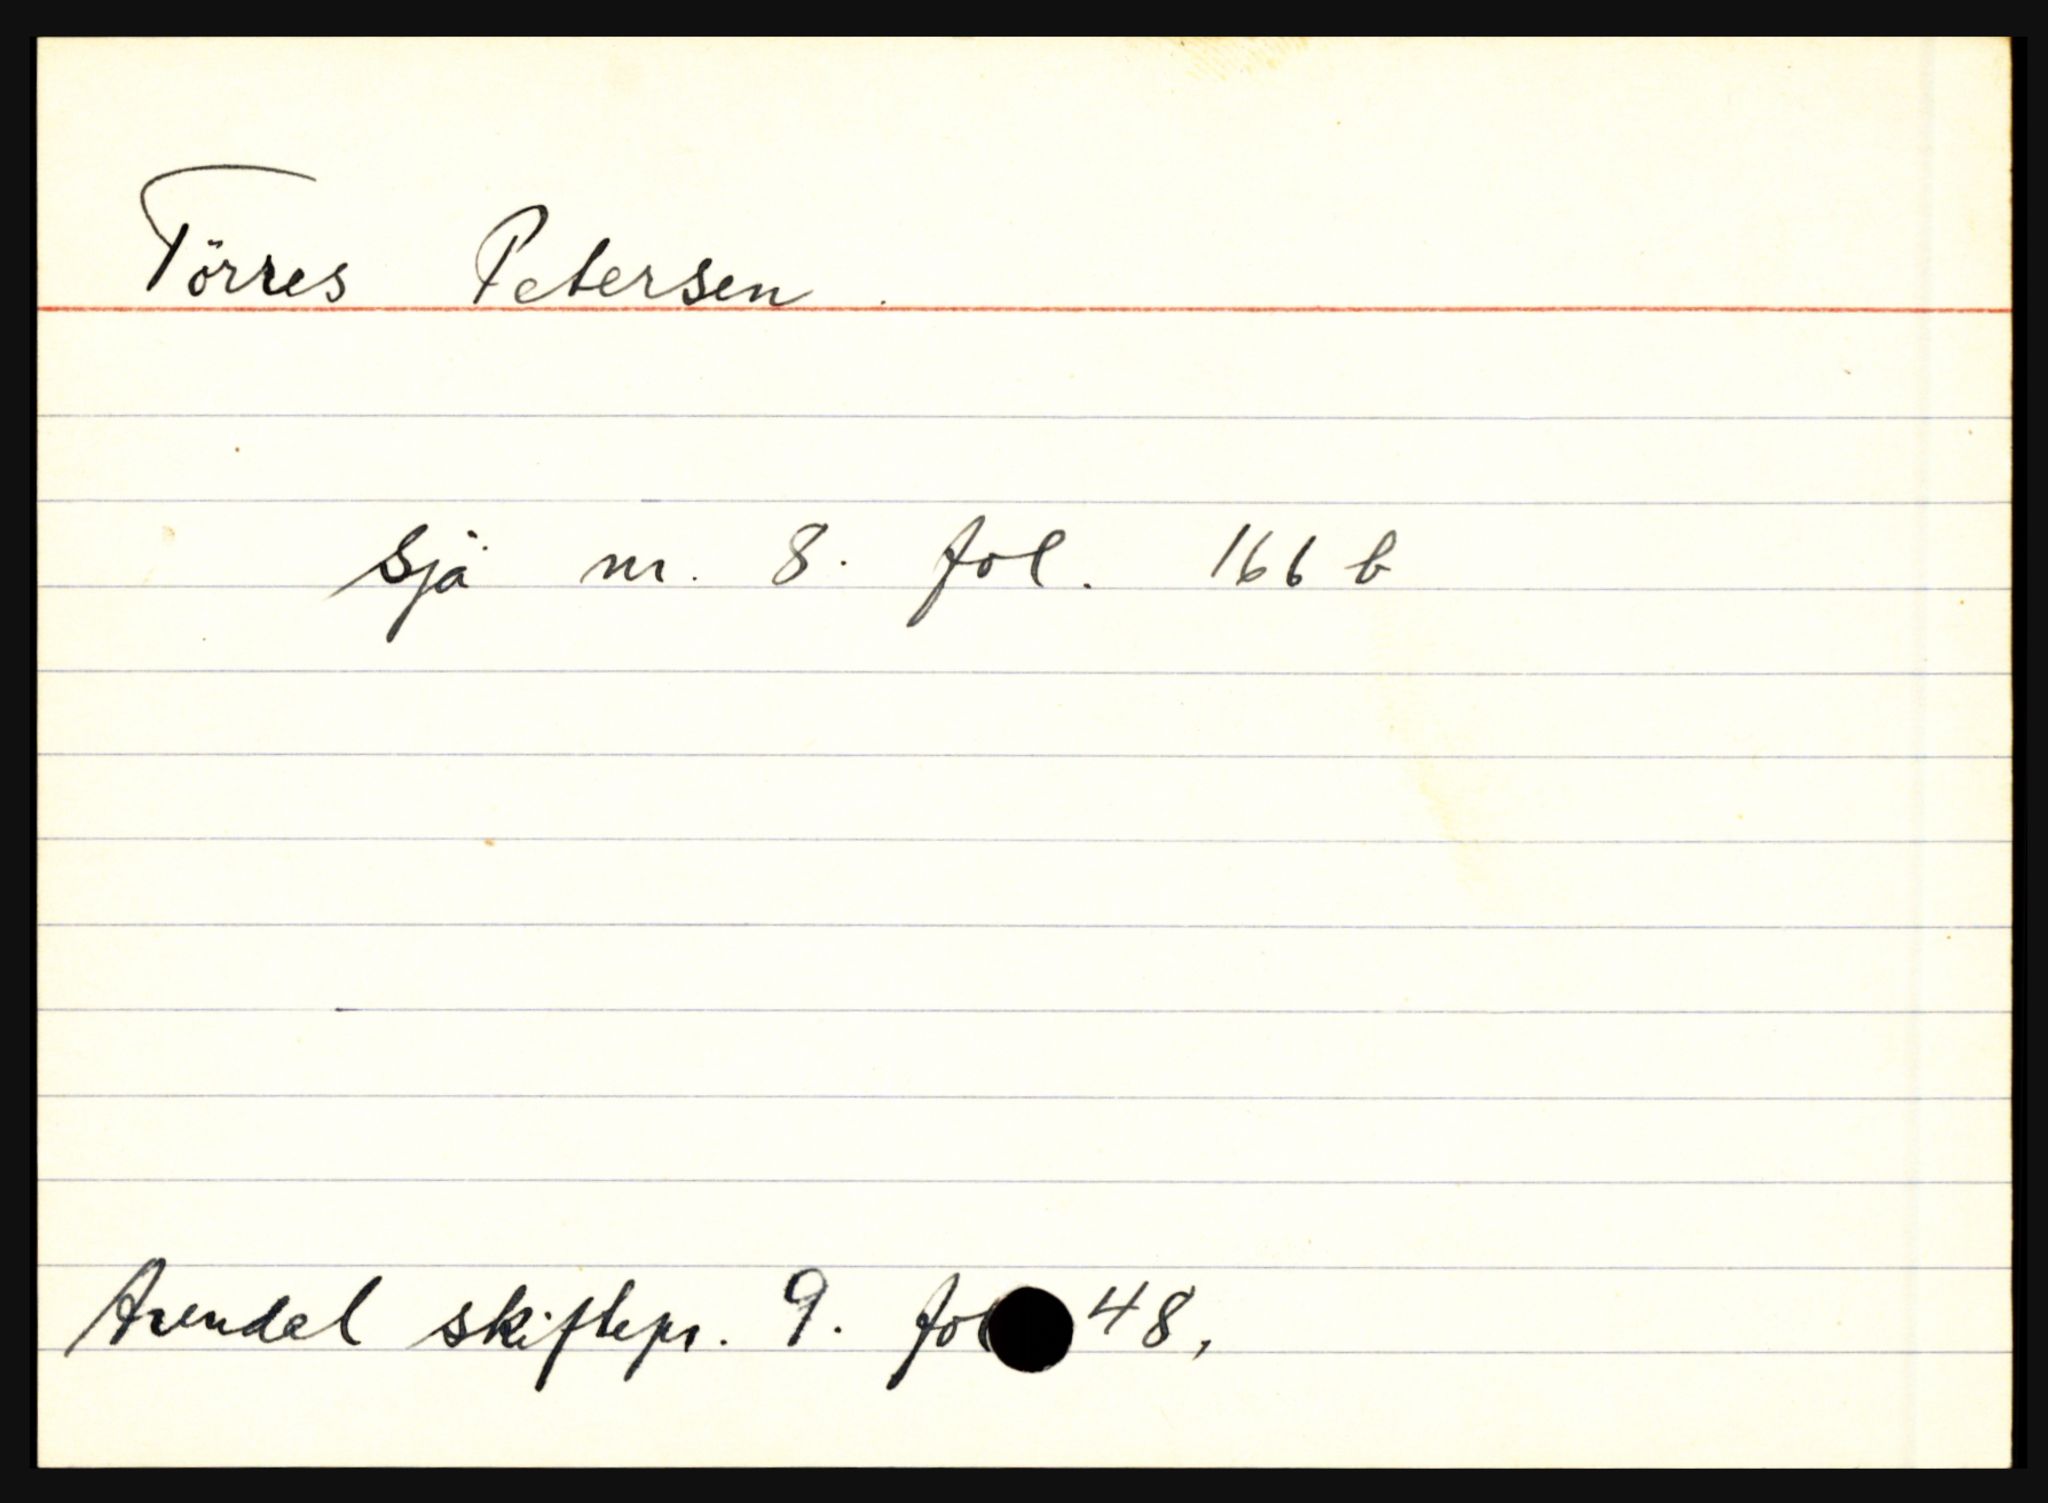 Törres Petersen.
Sjå nr. 8. fol. 166 b
Arendal skiftepr. 9. fol 48,